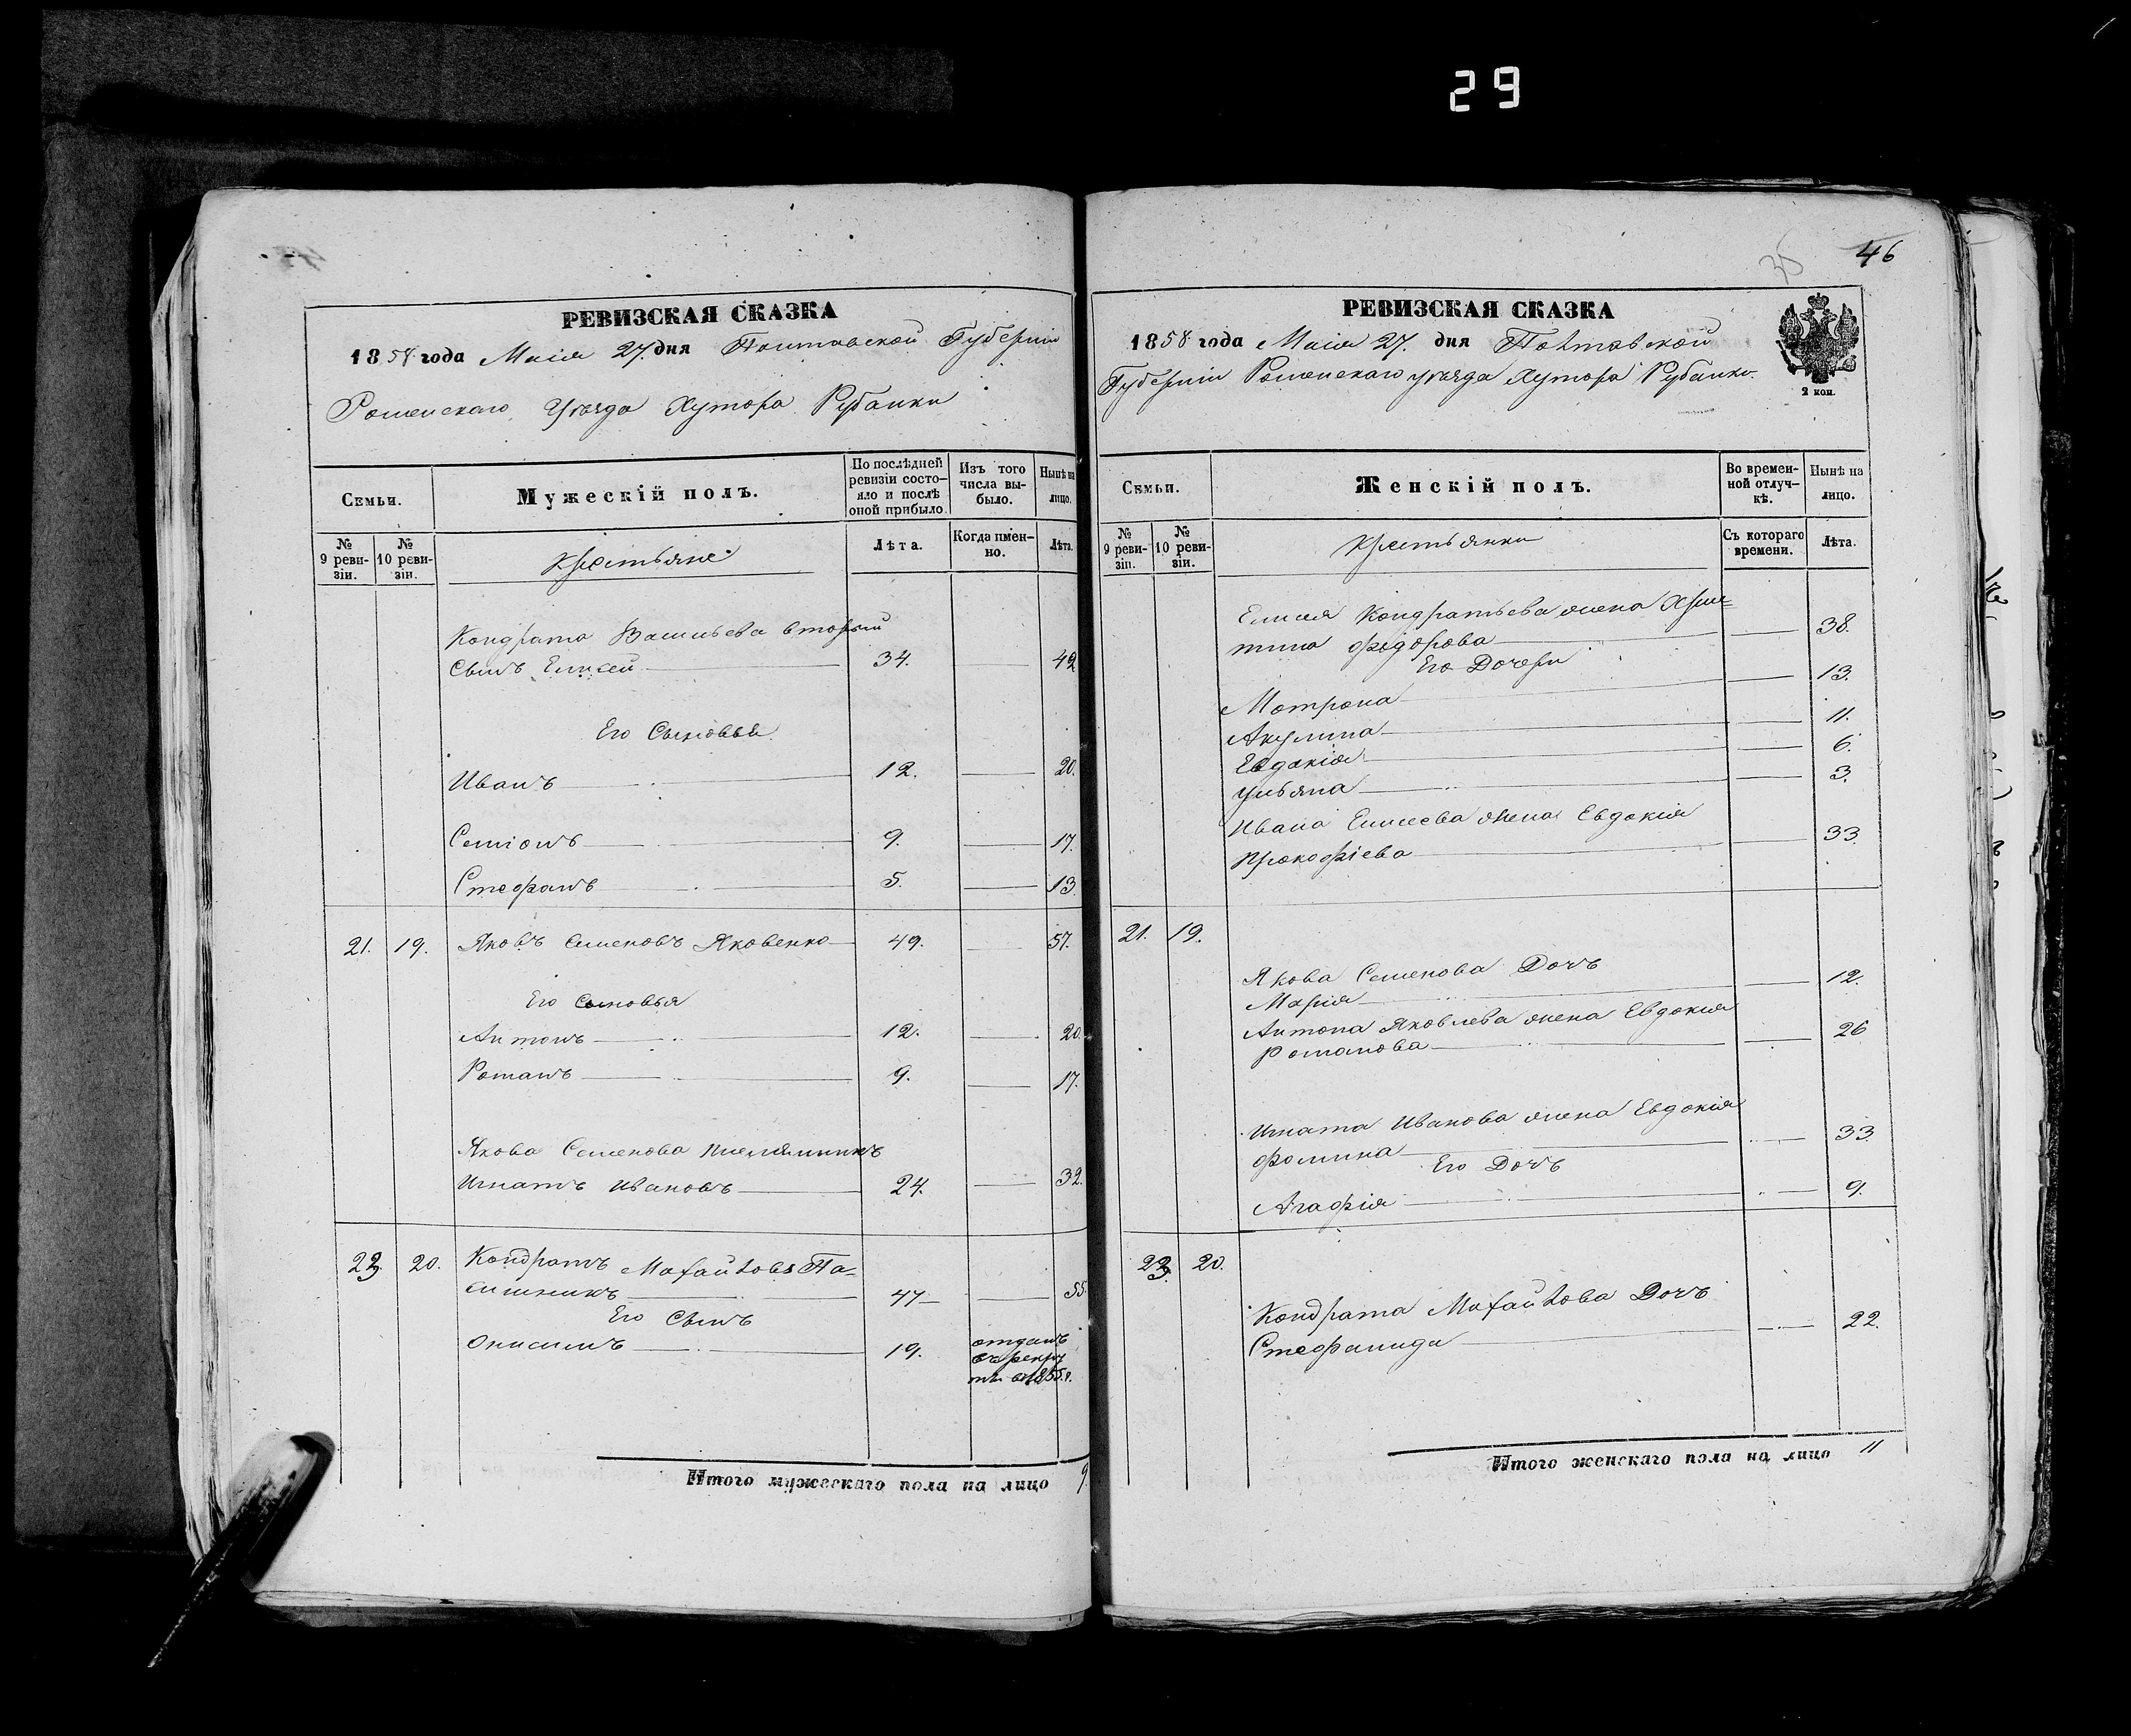 29
РЕВИЗСКАЯ СКАЗКА
1858 года Маія 27. дня Полтавской Губерніи
Роменскаго Уѣзда Хутора Рубанки
Семьи.
Мужескій полъ.
По послѣдней ревизіи состояло и послѣ оной прибыло
Изъ того числа выбыло.
Нынѣ на лицо.
№ 9 ревизіи.
№ 10 ревизіи.
Крестьяне
Лѣта.
Когда именно.
Лѣта.
Кондрата Васильева вторый
Сынъ Елисей 34. 42
Его Сыновья
Иванъ 12. 20.
Семіонъ 9. 17.
Стефанъ 5. 13.
21. 19. Яковъ Семеновъ Яковенко 49. 57.
Его Сыновья
Антонъ 12. 20.
Романъ 9. 17.
Якова Семенова племянникъ
Игнатъ Ивановъ 24. 32.
20. Кондратъ Михайловъ Па-
сишникъ 47 55.
Его Сынъ
Онисимъ 19. отданъ
въ рекру
ты 1855.г.
Итого мужескаго пола на лицо 9.
46
35
РЕВИЗСКАЯ СКАЗКА
1858 года Маія 27. дня Полтавской
Губерніи Роменскаго уѣзда Хутора Рубанки.
2 коп.
Семьи.
Женскій полъ.
Во временной отлучкѣ.
Нынѣ на лицо.
№ 9 ревизіи.
№ 10 ревизіи.
Крестьянки
Съ котораго времени.
Лѣта.
Елисея Кондратьева жена Хрис-
тина Фіодорова 38.
Его Дочери
Мотрона 13.
Акулина 11.
Евдокія 6.
Ульяна 3.
Ивана Елисеева жена Евдокія
Прокофіева 33.
21. 19.
Якова Семенова Дочъ
Марія 12.
Антона Яковлева жена Евдокія
Романова 26
Игната Иванова жена Евдокія
Фомина 33.
Его Дочъ
Агафія 9.
20.
Кондрата Михайлова Дочъ
Стефанида 22.
Итого женскаго пола на лицо 11